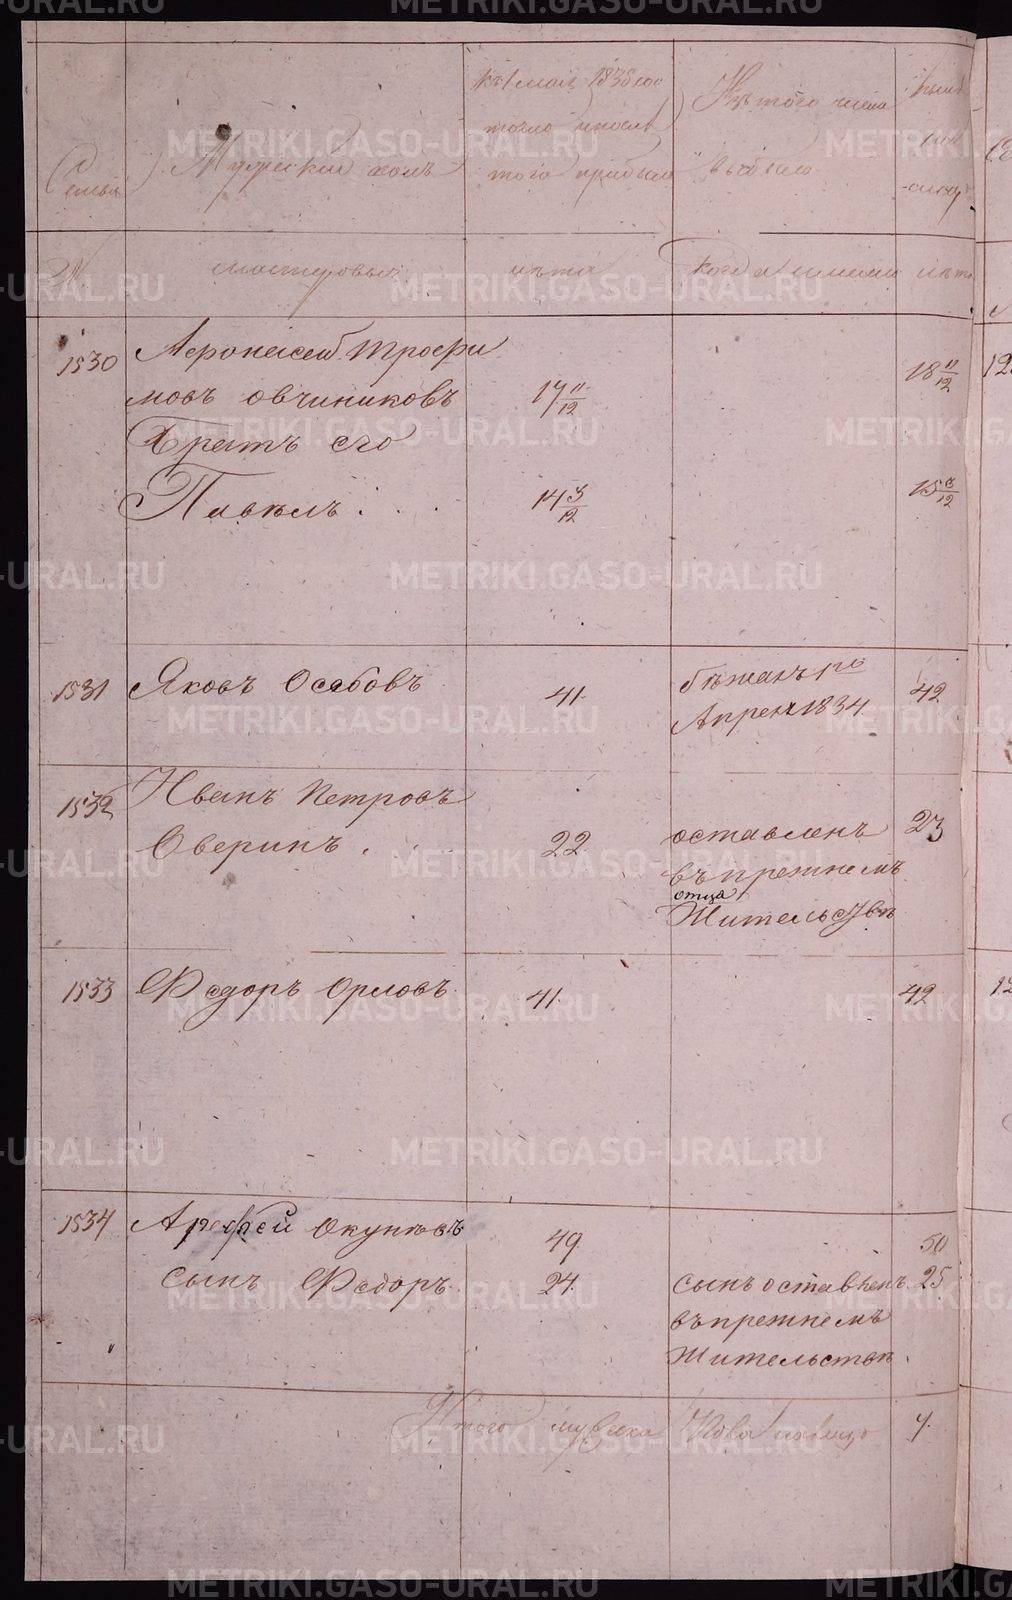 Семьи
Мужескій полъ
къ 1 мая 1838 го
точно и послѣ
того прибыло
Изъ того числа
выбыло
№
мастеровые
лѣта
когда именно
лѣта
1530
Афонасей Трофи
мовъ овчиниковъ
17 11/12
18 11/12
Братъ его
Павелъ . . .
14 3/12
15 3/12
1531
Яковъ Осабовъ
41.
бѣжалъ 1го
Апреля 1834.
42
1532
Иванъ Петровъ
Оверинъ . . .
22
оставленъ
въ прежнемъ
отца
Жительствѣ
23
1533
Федоръ Орловъ.
41.
42
1534
Арефей Окуневъ
49
50
сынъ Федоръ.
24.
сынъ оставленъ
25
въ прежнемъ
Жительствѣ.
Итого мужеска пола налицо
4.
METRIKI.GASO-URAL.RU